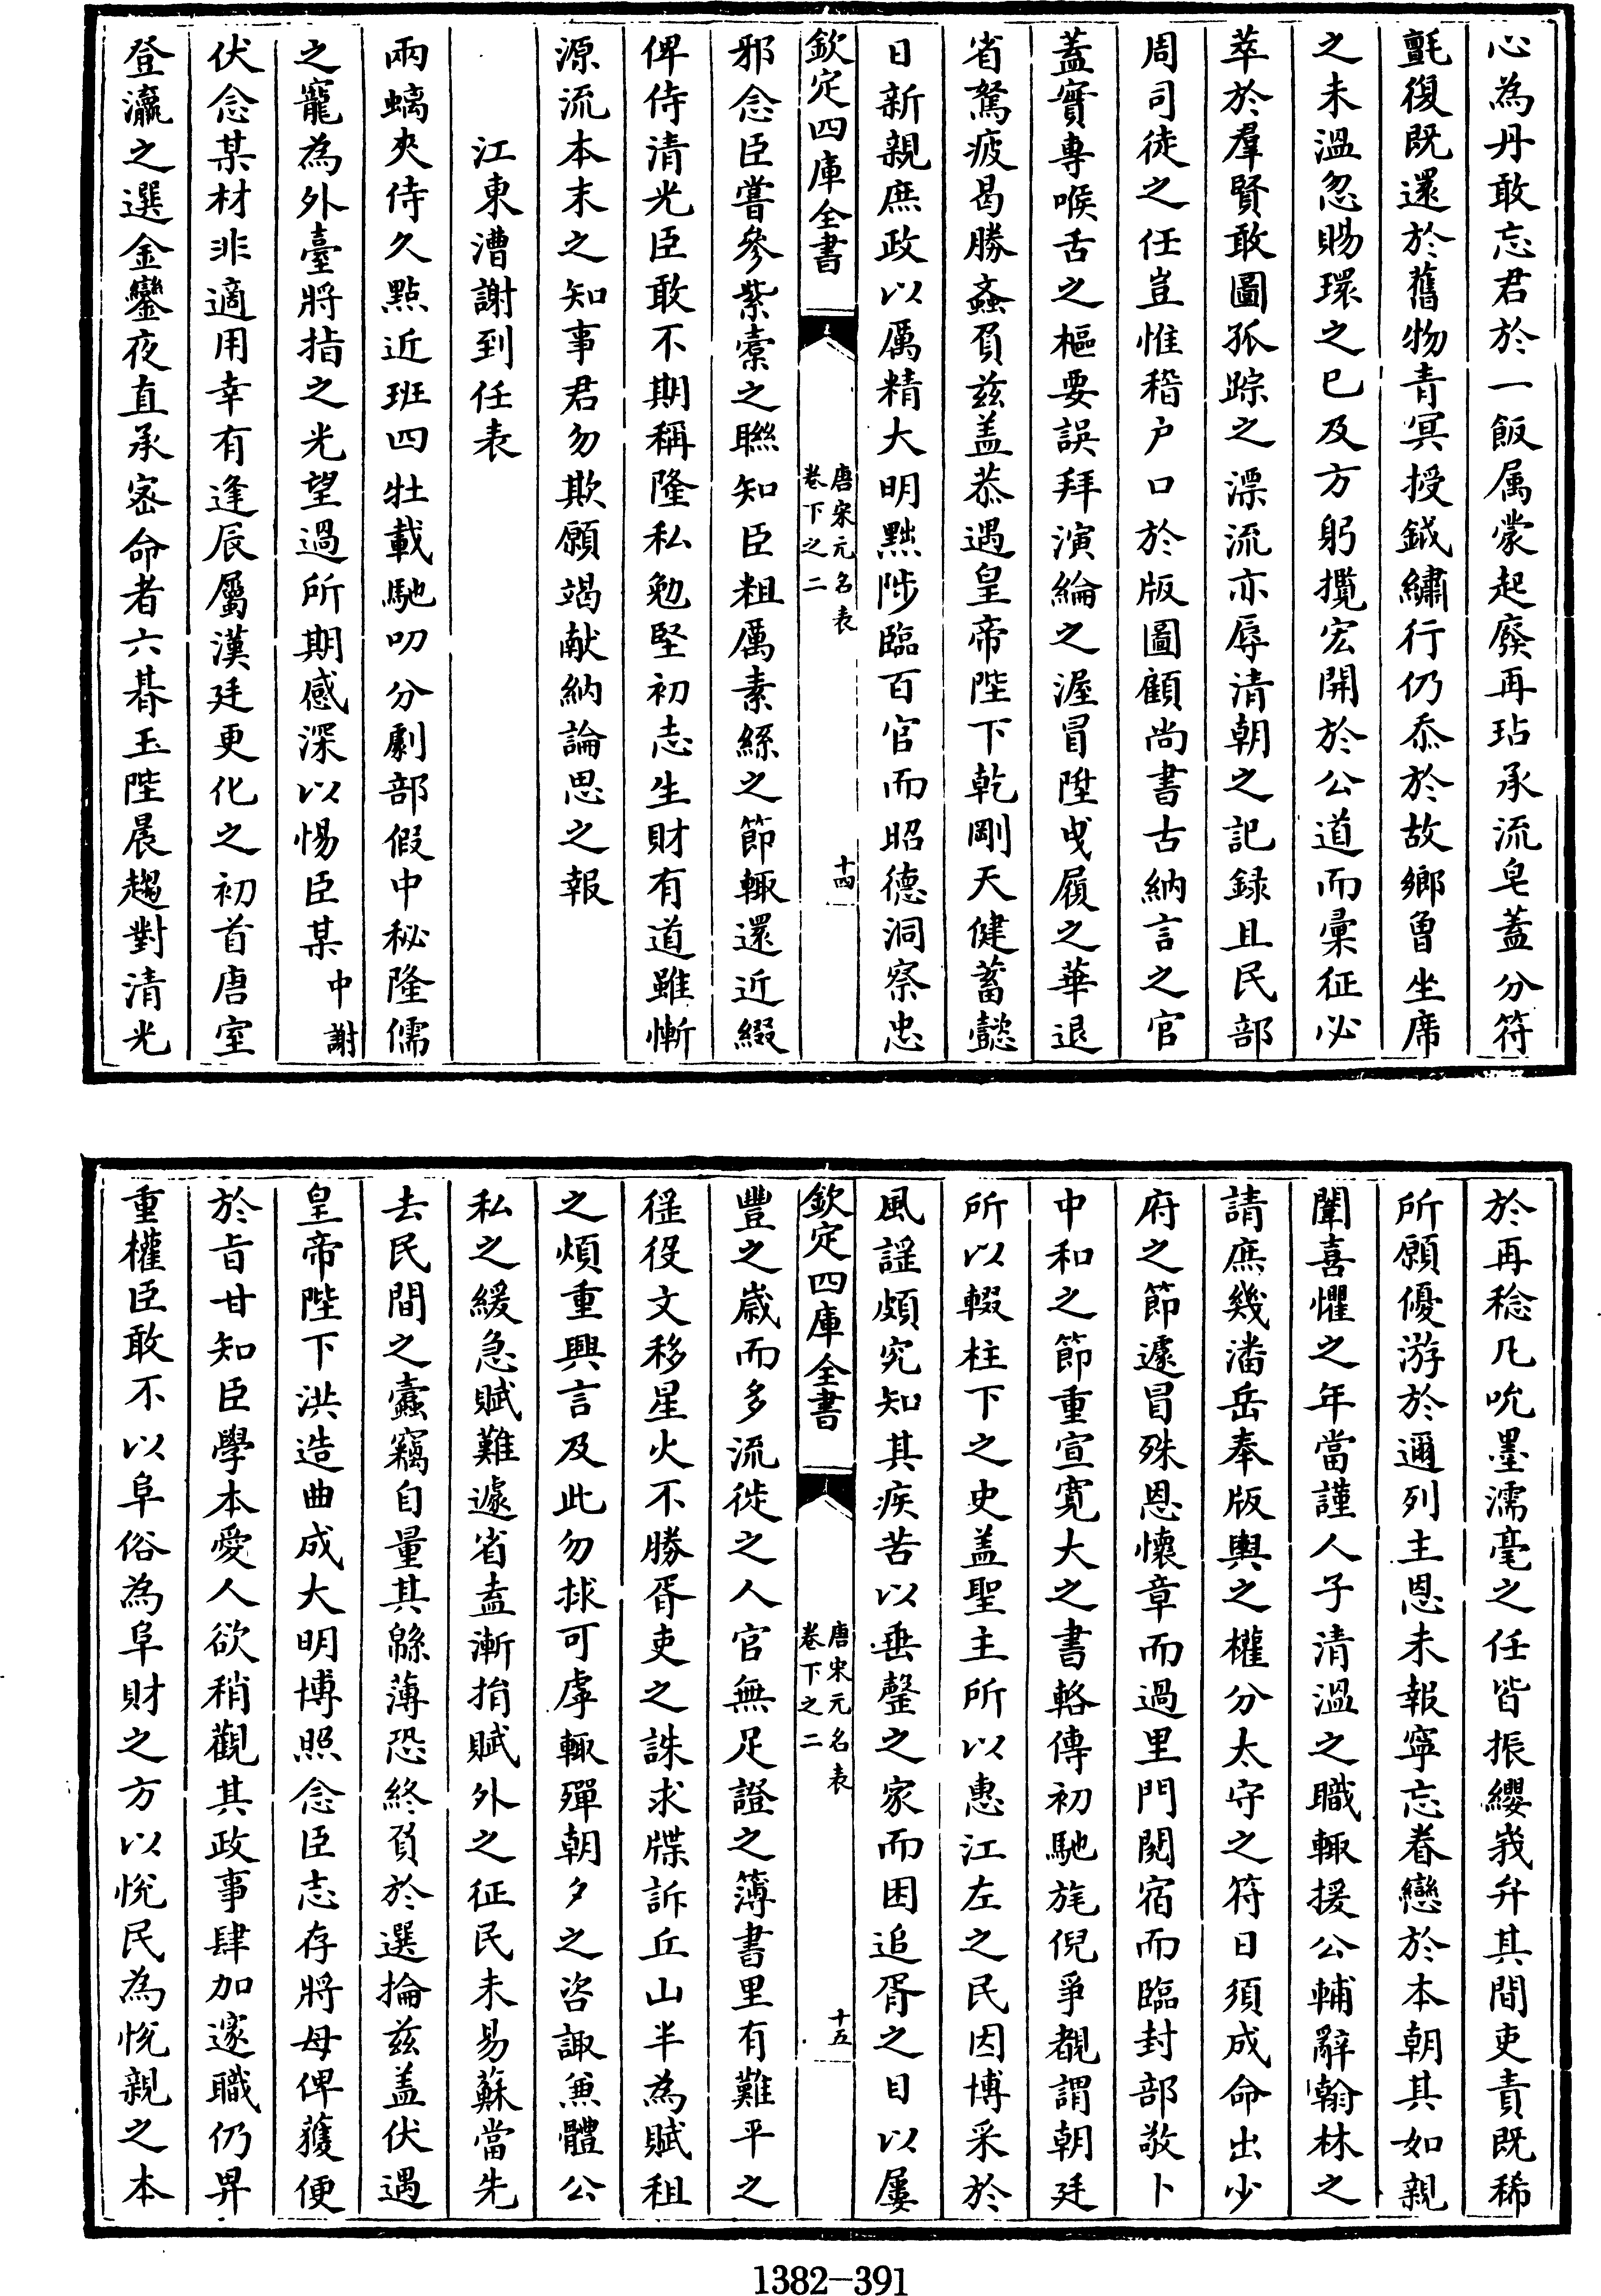 心為丹敢忘君於一飯属蒙起廢再玷承流皂蓋分符
氈復既還於舊物青冥授鉞繡行仍忝於故鄉曾坐席
之未溫忽賜環之已及方躬攬宏開於公道而彙征必
萃於羣賢敢圖孤踪之漂流亦辱清朝之記録且民部
周司徒之任豈惟稽户口於版圖顧尚書古納言之官
蓋實專喉舌之樞要誤拜演綸之渥冒陞曵履之華退
省駑疲曷勝蚉負兹盖恭遇皇帝陛下乾剛天健蓄懿
日新親庶政以厲精大明黜陟臨百官而昭德洞察忠
欽定四庫全書
唐宋元名表
卷下之二
十四
邪念臣嘗參紫橐之聯知臣粗厲素絲之節輙還近綴
俾侍清光臣敢不期稱隆私勉堅初志生財有道雖慚
源流本末之知事君勿欺願竭献納論思之報
江東漕謝到任表
兩螭夾侍久點近班四牡載馳叨分劇部假中秘隆儒
之寵為外臺將指之光望過所期感深以惕臣某中謝
伏念某材非適用幸有逢辰屬漢廷更化之初首唐室
登瀛之選金鑾夜直承宻命者六朞玉陛晨趨對清光
於再稔凡吮墨濡毫之任皆振纓峩弁其間吏責既稀
所願優游於邇列主恩未報寧忘眷戀於本朝其如親
闈喜懼之年當謹人子清溫之職輙援公輔辭翰林之
請庶幾潘岳奉版輿之權分太守之符日須成命出少
府之節遽冒殊恩懷章而過里門閱宿而臨封部敬卜
中和之節重宣寛大之書輅傳初馳旄倪爭覩謂朝廷
所以輟柱下之史盖聖主所以惠江左之民因博采於
風謡頗究知其疾苦以垂罄之家而困追胥之日以屢
欽定四庫全書
唐宋元名表
卷下之二
十五
豐之嵗而多流徙之人官無足證之簿書里有難平之
徭役文移星火不勝胥吏之誅求牒訴丘山半為賦租
之煩重興言及此勿捄可虖輙殫朝夕之咨諏兼體公
私之緩急賦難遽省盍漸捐賦外之征民未易蘇當先
去民間之蠧竊自量其緜薄恐終負於選掄兹盖伏遇
皇帝陛下洪造曲成大明博照念臣志存將母俾獲便
於㫖甘知臣學本愛人欲稍觀其政事肆加邃職仍畀
重權臣敢不以阜俗為阜財之方以悅民為悅親之本
1382-391